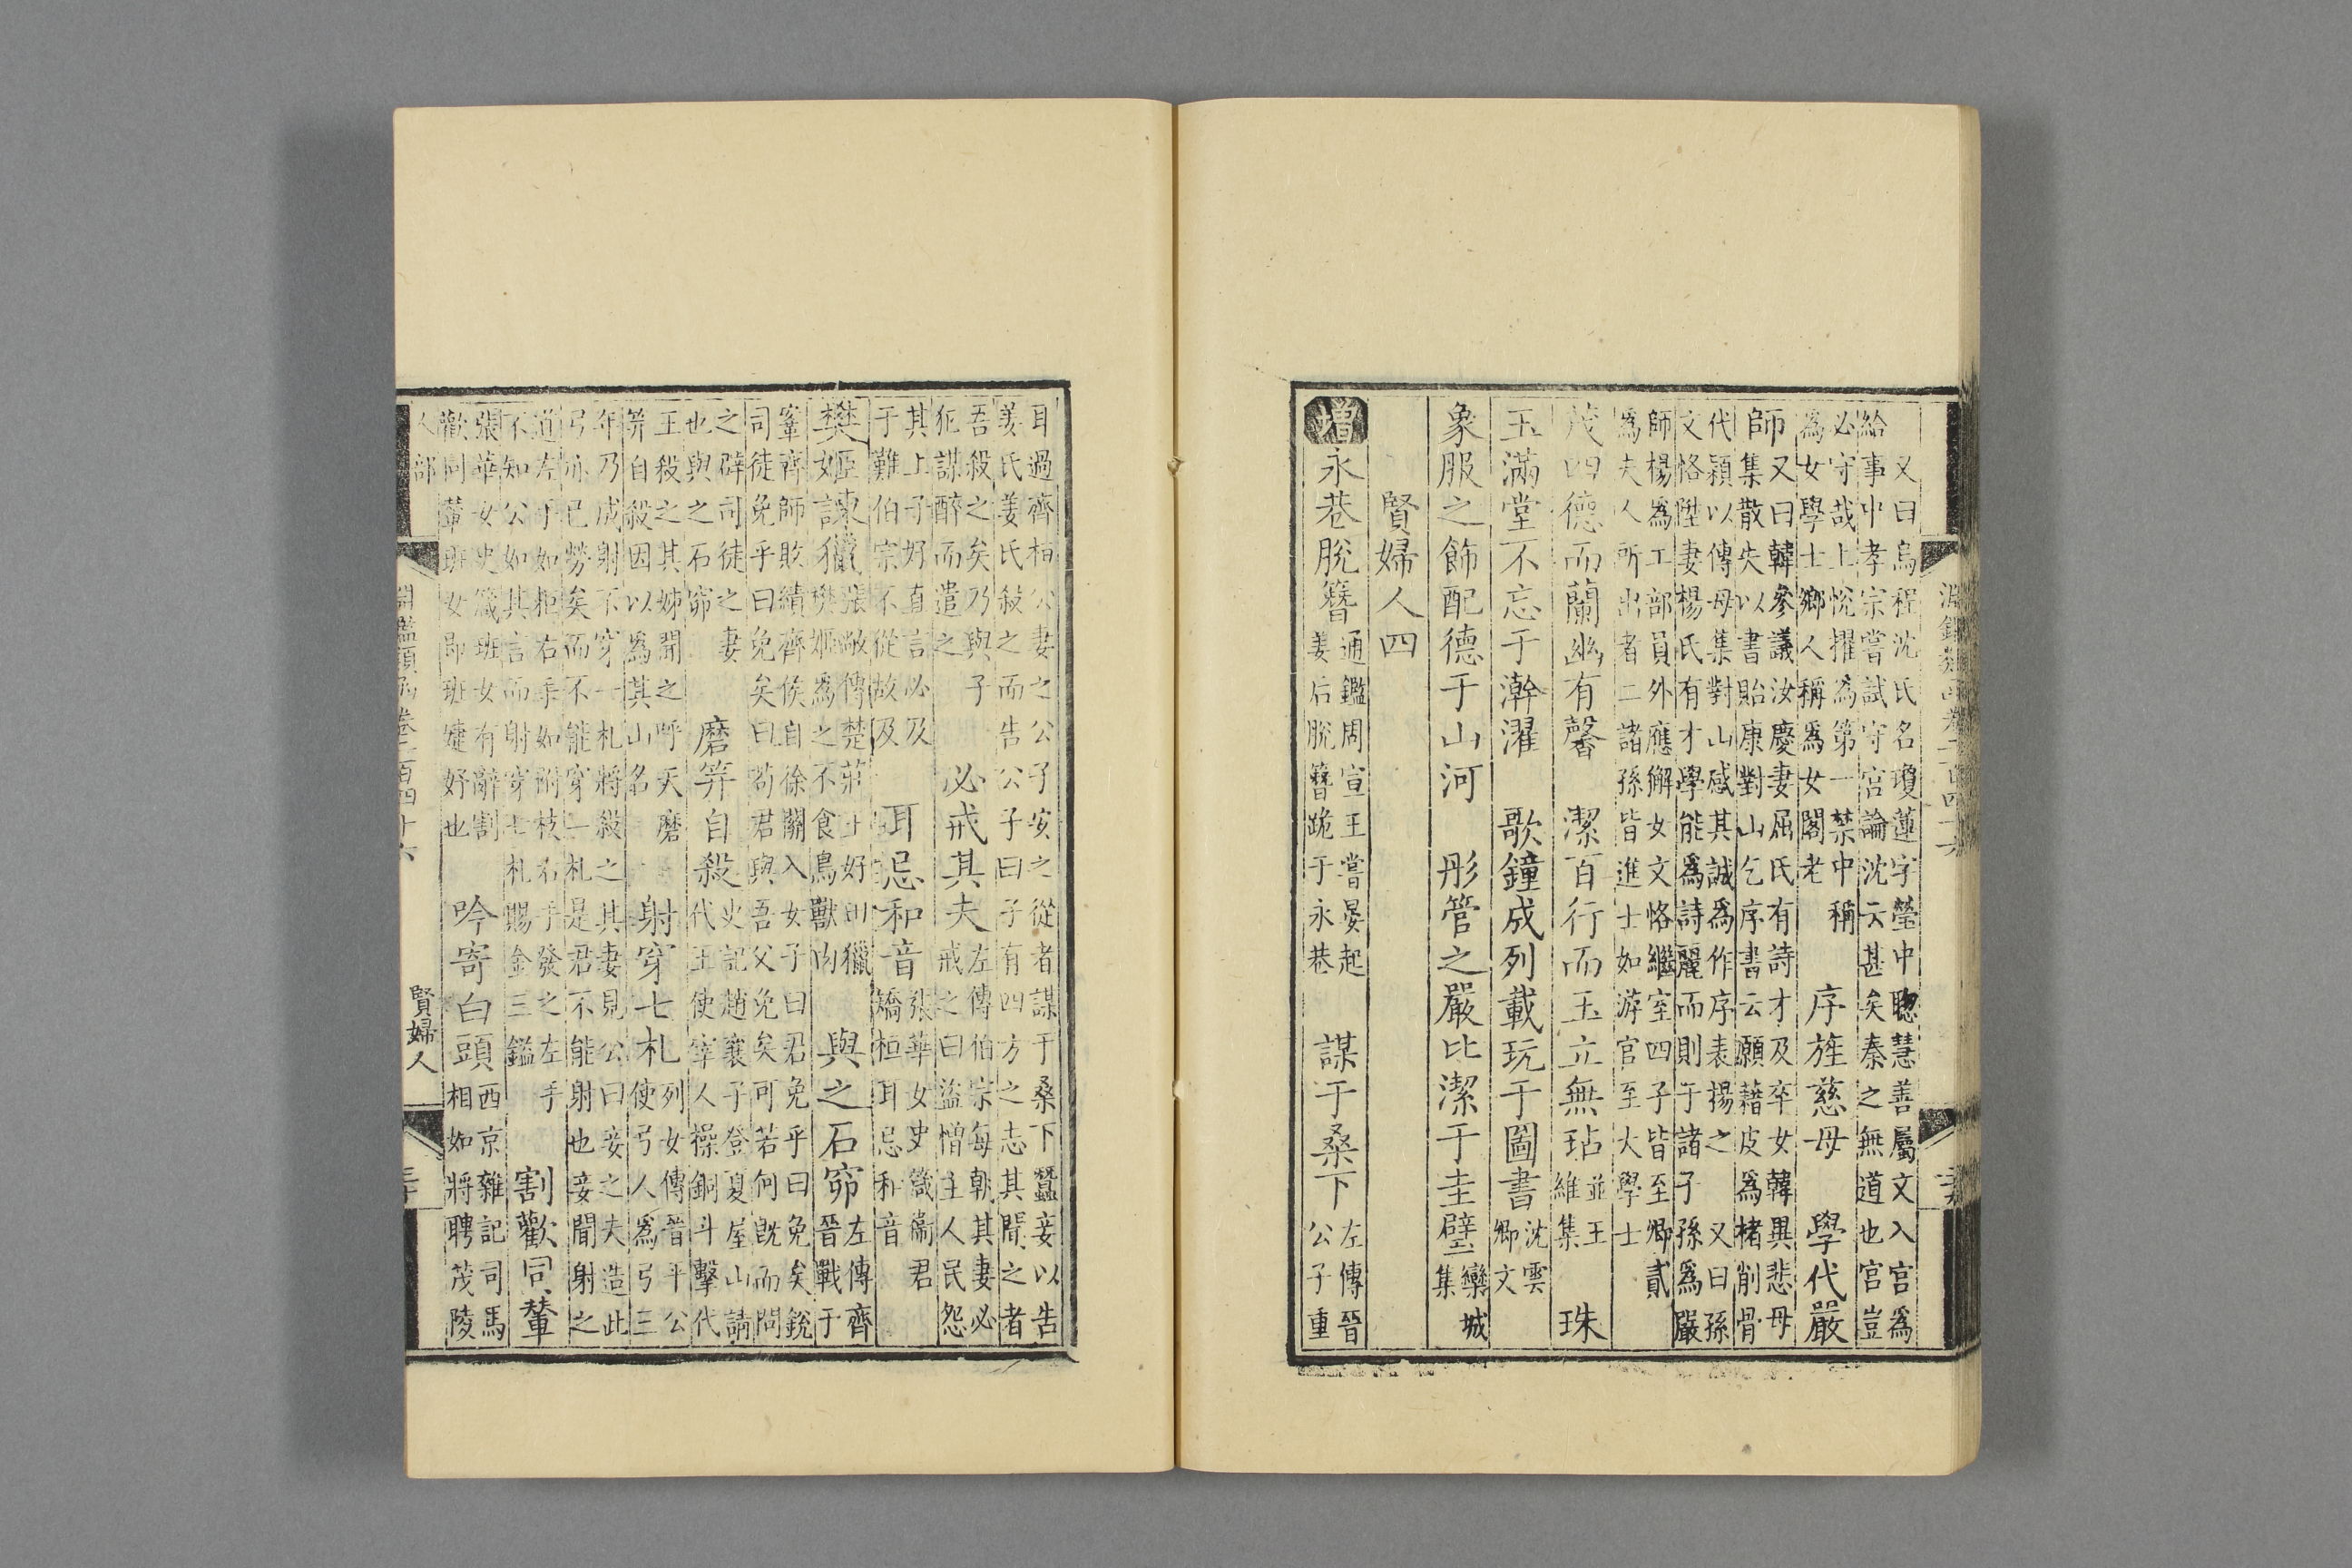 淵鑑類函卷二百四十六
又曰烏程沈氏名瓊蓮字瑩中聰慧善屬文入宮為
給事中孝宗嘗試守宮論沈云甚矣秦之無道也宮豈
必守哉上悅擢為第一禁中稱
為女學士鄉人稱為女閣老
序旌慈母 學代嚴
師
又曰韓參議汝慶妻屈氏有詩才及卒女韓異悲母
集散失以書貽康對山乞序書云願藉皮為楮削骨
代穎以傳母集對山感其誠為作序表揚之 又曰孫
文恪陞妻楊氏有才學能為詩麗而則于諸子孫為嚴
師楊為工部員外應獬女文恪繼室四子皆至卿貳
為夫人所出者二諸孫皆進士如游官至大學士
茂四德而蘭幽有馨 潔百行而玉立無玷
並王
維集
珠
玉滿堂不忘于澣濯 歌鐘成列載玩于圖書
沈雲
卿文
象服之飾配德于山河 彤管之嚴比潔于圭璧
欒城
集
賢婦人四
增永巷脫簪
通鑑周宣王嘗晏起
姜后脫簪跪于永巷
謀于桑下
左傳晉
公子重
耳過齊桓公妻之公子安之從者謀于桑下蠶妾以告
姜氏姜氏殺之而告公子曰子有四方之志其聞之者
吾殺之矣乃與子
犯謀醉而遣之
必戒其夫
左傳伯宗每朝其妻必
戒之曰盜憎主人民怨
其上子好直言必及
于難伯宗不從故及
耳忌和音
張華女史箴衛君
矯桓耳忌和音
樊姬諫獵
張敞傳楚莊王好田獵
樊姬為之不食鳥獸肉
與之石窌
左傳齊
晉戰于
鞌齊師敗績齊侯自徐關入女子曰君免乎曰免矣銳
司徒免乎曰免矣曰苟君與吾父免矣可若何既而問
之辟司徒之妻
也與之石窌
磨筓自殺
史記趙襄子登夏屋山請
代王使宰人操銅斗擊代
王殺之其姊聞之呼天磨
筓自殺因以為其山名
射穿七札
列女傳晉平公
使弓人為弓三
年乃成射不穿一札將殺之其妻見公曰妾之夫造此
弓亦已勞矣而不能穿一札是君不能射也妾聞射之
道左手如拒右手如附枝右手發之左手
不知公如其言而射穿七札賜金三鎰
割歡同輦
張華女史箴班女有辭割
歡同輦班女即班婕妤也
吟寄白頭
西京雜記司馬
相如將聘茂陵
人部
淵鑑類函卷二百四十六
賢婦人
三十